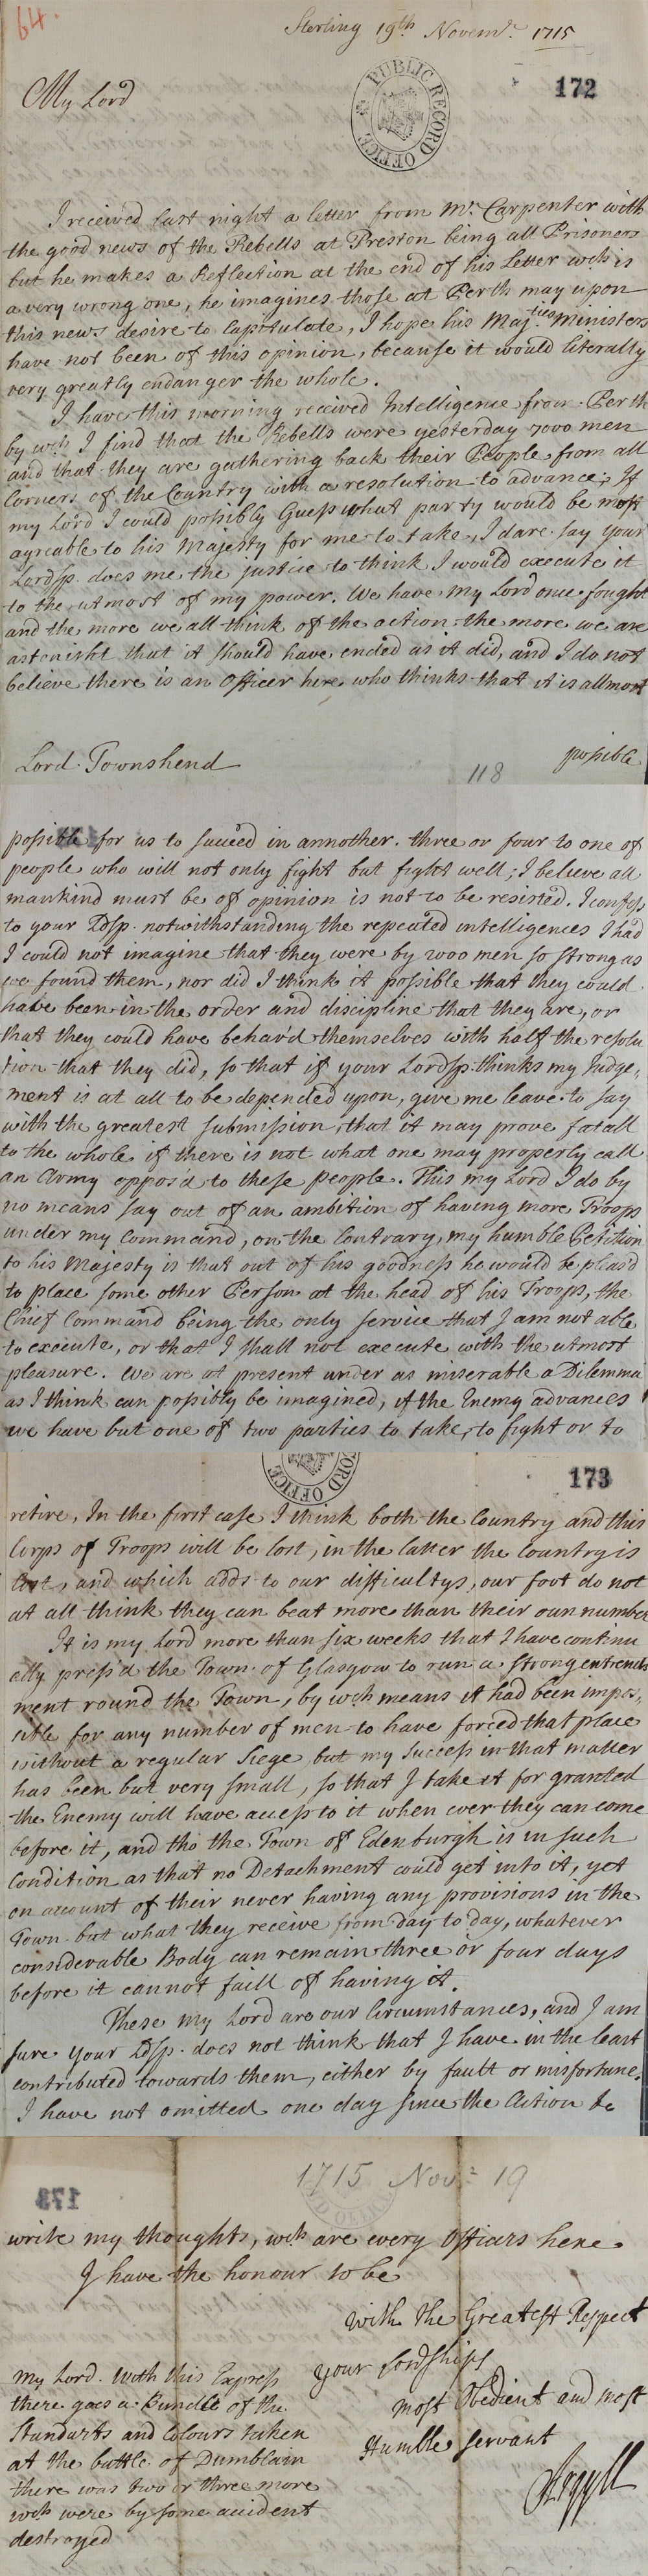 64.
Sterling 19th Novemr. 1715
PUBLIC RECORD OFFICE
172
My Lord
I receiv'd last night a letter from Mr. Carpenter with
the good news of the Rebells at Preston being all Prisoners
but he makes a Reflection at the end of his Letter wch is
a very wrong one, he imagines those at Perth may upon
this news desire to Capitulate, I hope his Majties Ministers
have not been of this opinion, because it would literally
very greatly endanger the whole.
I have this morning received Intelligence from Perth
by wch I find that the Rebells were yesterday 7000 men
and that they are gathering back their People from all
Corners of the Country with a resolution to advance; If
my Lord I could possibly Guess what party would be most
agreable to his Majesty for me to take, I dare say your
Lordsp. does me the justice to think I would execute it
to the utmost of my power. We have my Lord once fought
and the more we all think of the action the more we are
astonisht that it should have ended as it did, and I do not
believe there is an officer here who thinks that it is allmost
possible
Lord Townshend
118
possible for us to succeed in annother. three or four to one of
people who will not only fight but fight well; I believe all
mankind must be of opinion is not to be resisted. I confess
to your Ldsp. notwithstanding the repeated intelligences I had
I could not imagine that they were by 2000 men so strong as
we found them, nor did I think it possible that they could
have been in the order and discipline that they are, or
that they could have behav'd themselves with half the resolu
tion that they did, so that if your Lordsp. thinks my Judge,
ment is at all to be depended upon, give me leave to say
with the greatest submission that it may prove fatall
to the whole if there is not what one may properly call
an Army oppos'd to these people. This my Lord I do by
no means say out of an ambition of having more Troops
under my Command, on the Contrary, my humble Petition
to his Majesty is that out of his goodness he would be pleas'd
to place some other Person at the head of his Troops, the
Chief Command being the only service that I am not able
to execute, or that I shall not execute with the utmost
pleasure. We are at present under as miserable a Dilemma
as I think can possibly be imagined, if the Enemy advances
we have but one of two parties to take, to fight or to
RECORD OFFICE
173
retire, In the first case I think both the Country and this
Corps of Troops will be lost, in the latter the Country is
lost, and which adds to our difficultys, our foot do not
at all think they can beat more than their own number
It is my Lord more than six weeks that I have continu
ally press'd the Town of Glasgow to run a strong entrench
ment round the Town, by wch means it had been impos,
sible for any number of men to have forced that place
without a regular Siege but my success in that matter
has been but very small, so that I take it for granted
the Enemy will have access to it when ever they can come
before it, and tho the Town of Edenburgh is in such
Condition as that no Detachment could get into it, yet
on account of their never having any provisions in the
Town but what they receive from day to day, whatever
considerable Body can remain three or four days
before it cannot faill of having it.
These my Lord are our Circumstances, and I am
sure your Ldsp. does not think that I have in the least
contributed towards them, either by fault or misfortune.
I have not omitted one day since the Action to
1715 Novr. 19
173
write my thoughts, wch are every officers here.
I have the honour to be
with the Greatest Respect
your Lordships
most Obedient and most
Humble servant
Argyll
My Lord. With this Express
there goes a Bundle of the
Standarts and Colours taken
at the battle of Dumblain
there was two or three more
wch were by some accident
destroyed